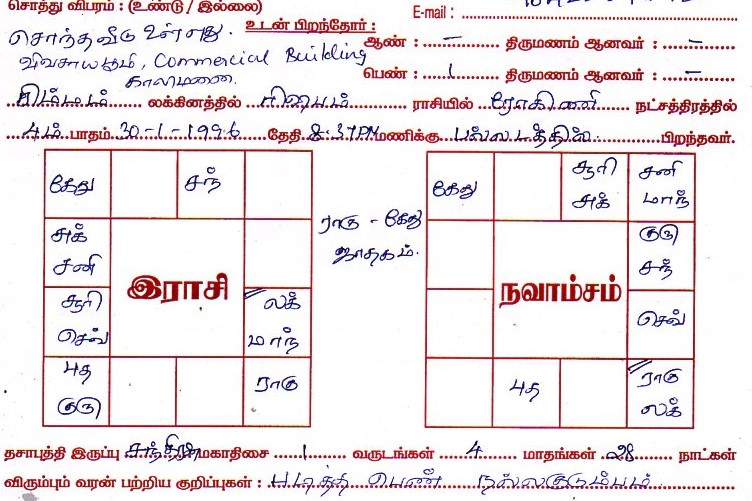 சொத்து விபரம் : (உண்டு / இல்லை)
E-mail :
சொந்த வீடு உள்ளது. உடன் பிறந்தோர் :
ஆண் : – திருமணம் ஆனவர் : –
விவசாய பூமி, Commercial Building
காலிமனை.
பெண் : 1 திருமணம் ஆனவர் : –
சிம்மம் லக்கினத்தில் ரிஷபம் ராசியில் ரோகிணி நட்சத்திரத்தில்
4ம் பாதம் 30-1-1996 தேதி 8.37PM மணிக்கு பல்லடத்தில் பிறந்தவர்.
கேது சந்
அக்
சனி
சூரி
செவ்
லக்
மாந்
புத
குரு
ராகு
இராசி
ராகு - கேது
ஜாதகம்.
கேது சூரி
சுக்
சனி
மாந்
குரு
சந்
செவ்
புத ராகு
லக்
நவாம்சம்
தசாபுத்தி இருப்பு சந்திரன் மகாதிசை 1 வருடங்கள் 4 மாதங்கள் 28 நாட்கள்
விரும்பும் வரன் பற்றிய குறிப்புகள் : படித்த பெண் நல்ல குடும்பம்.